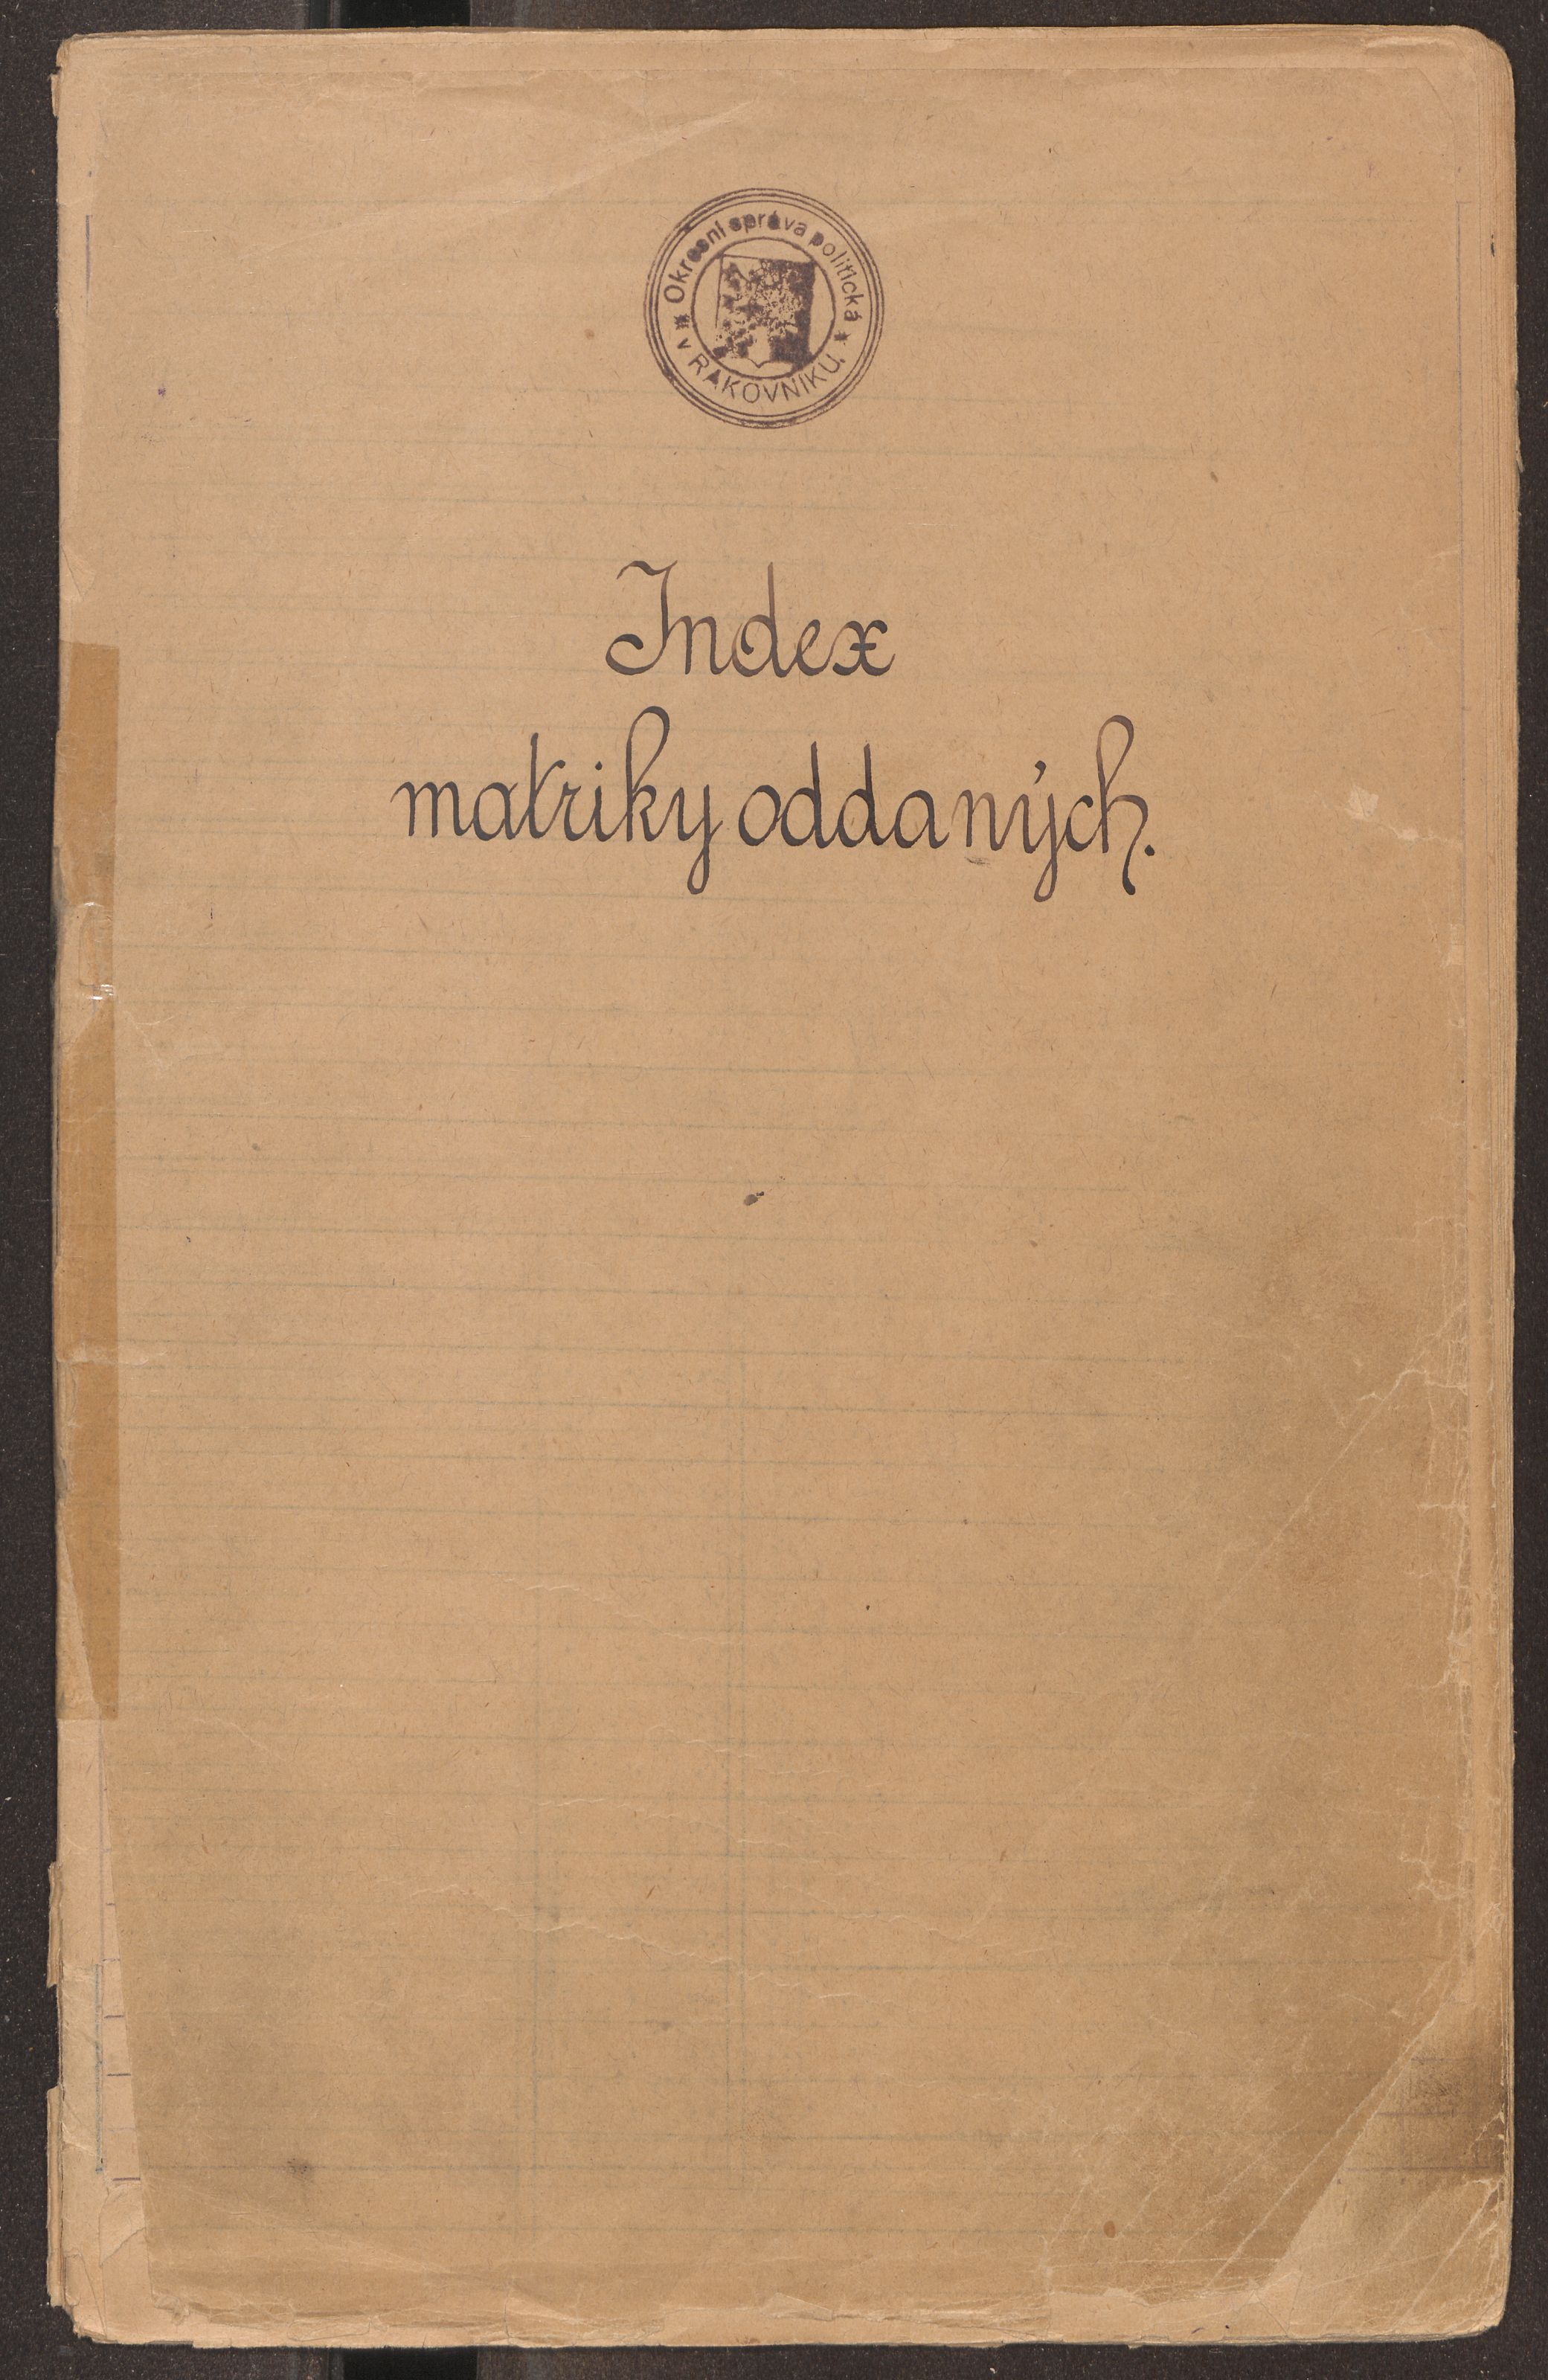 Okresní správa politická
v RAKOVNÍKU.
Index
matriky oddaných.